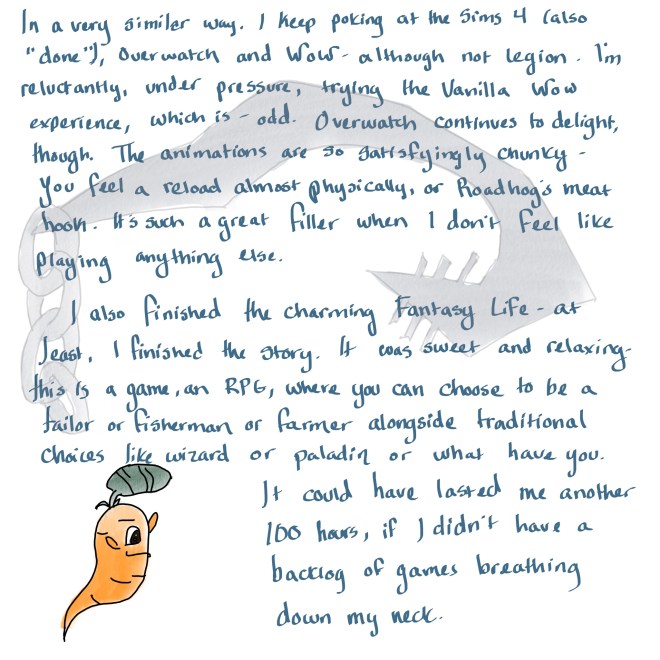 In a very similar way. I keep poking at the Sims 4 (also
"done"), Overwatch and WoW - although not legion. I'm
reluctantly, under pressure, trying the Vanilla WoW
experience, which is - odd. Overwatch continues to delight,
though. The animations are so satisfyingly chunky -
You feel a reload almost physically, or Roadhog's meat
hook. It's such a great filler when I don't feel like
playing anything else.
I also finished the charming Fantasy Life - at
least, I finished the story. It was sweet and relaxing-
this is a game, an RPG, where you can choose to be a
tailor or fisherman or farmer alongside traditional
choices like wizard or paladin or what have you.
It could have lasted me another
100 hours, if I didn't have a
backlog of games breathing
down my neck.